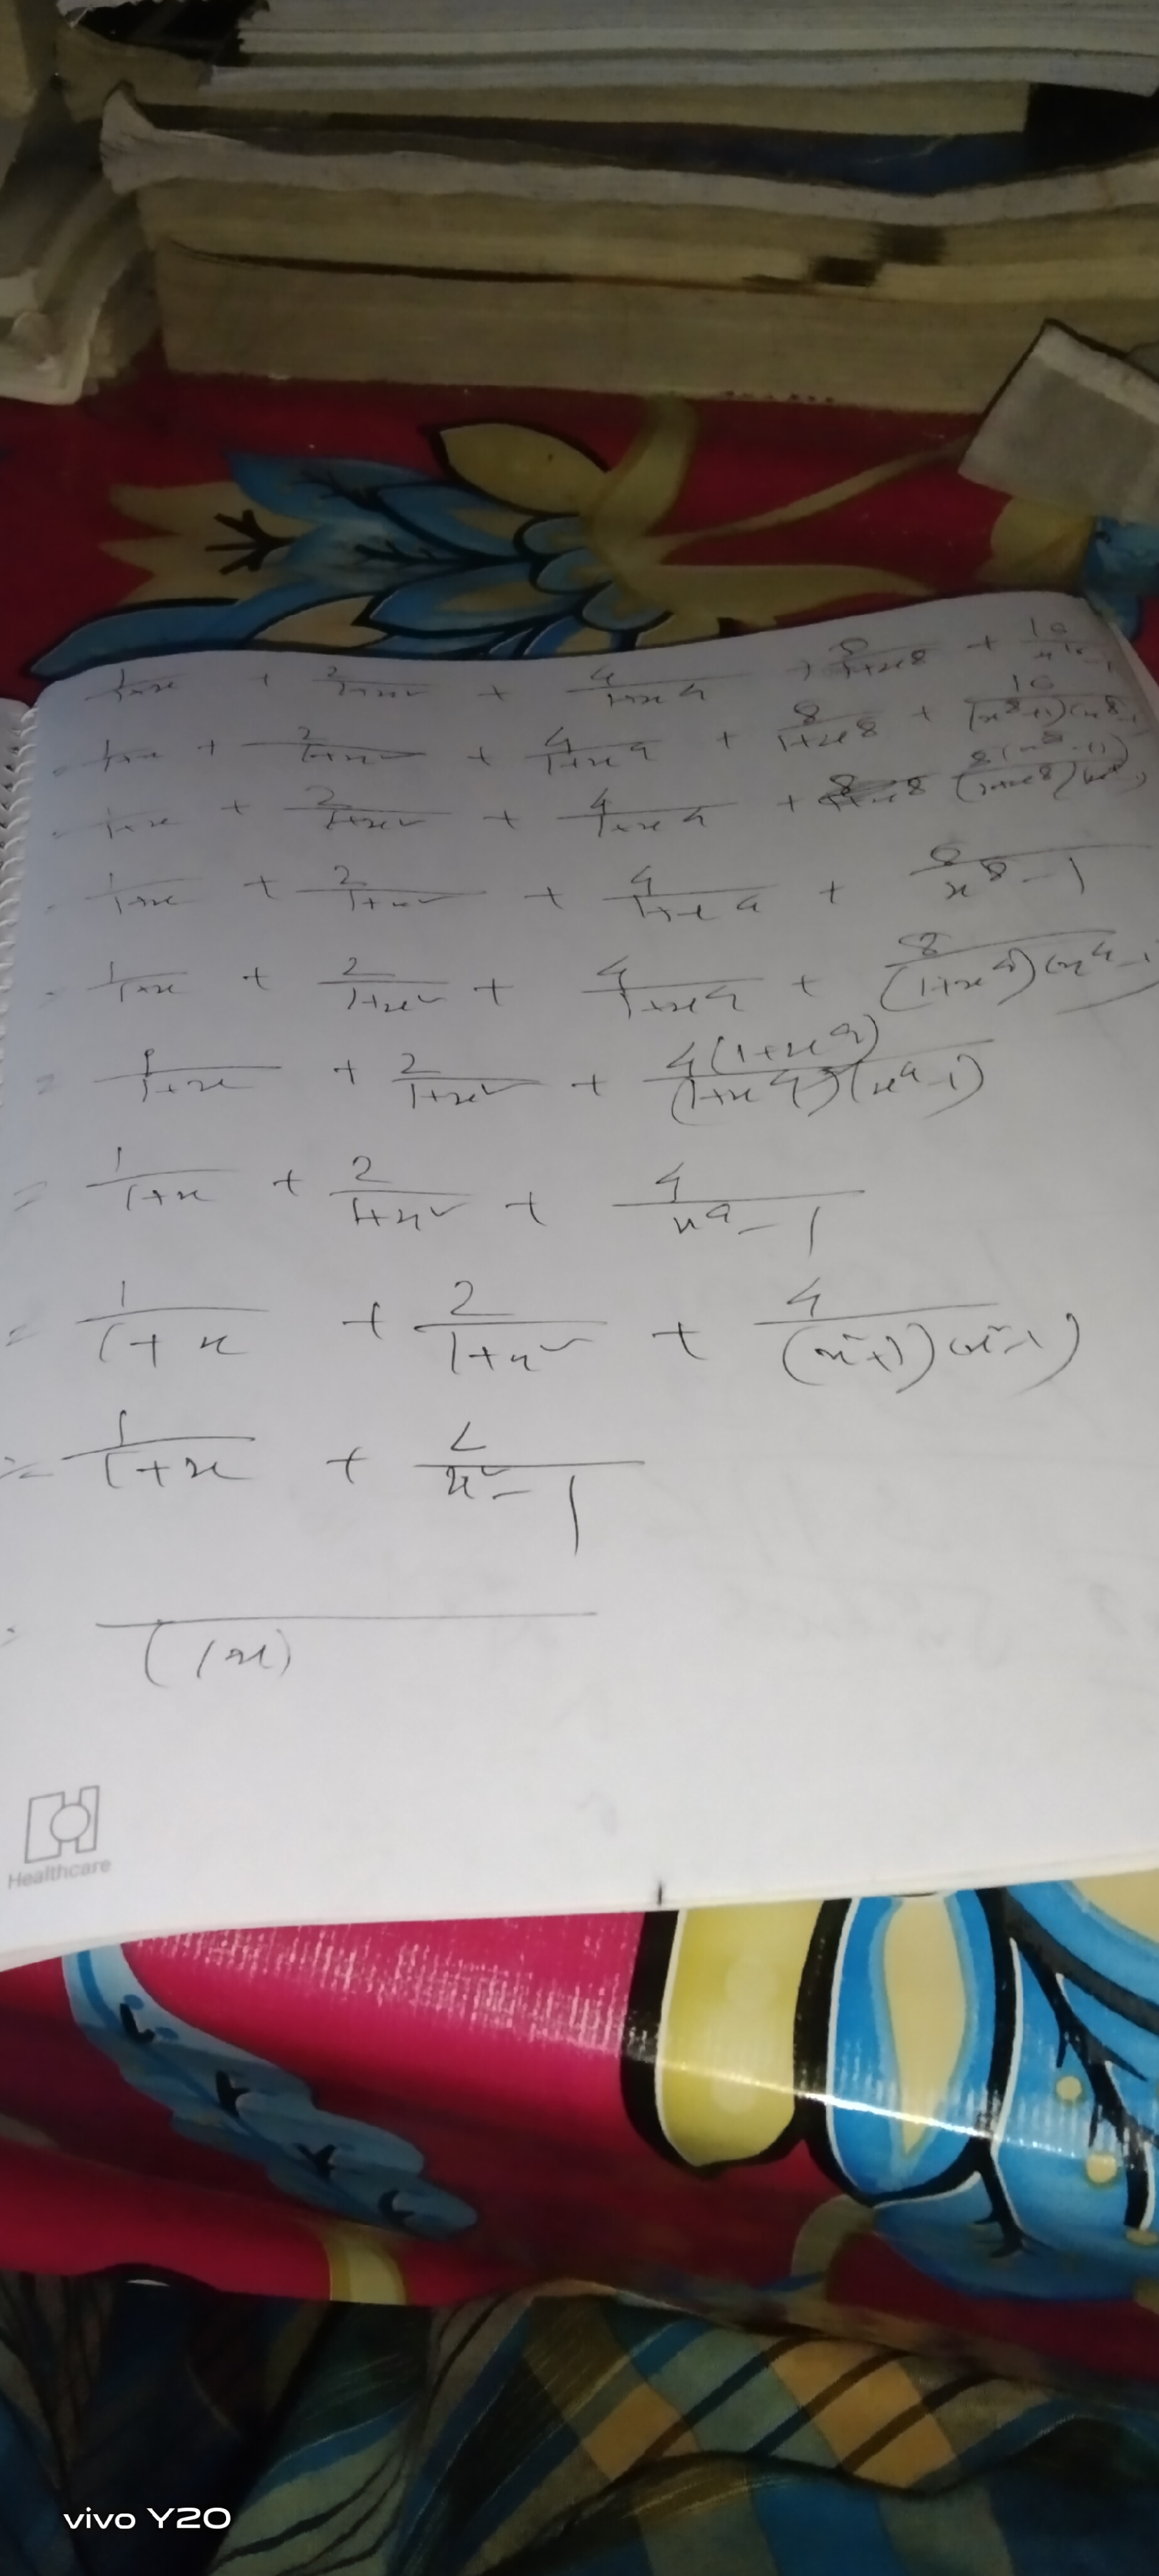 1/1+x + 2/1+x² + 4/1+x⁴ + 8/1+x⁸ + 16/x¹⁶-1
= 1/1+x + 2/1+x² + 4/1+x⁴ + 8/1+x⁸ + 16/(x⁸+1)(x⁸-1
= 1/1+x + 2/1+x² + 4/1+x⁴ +
= 1/1+x + 2/1+x² + 4/1+x⁴ + 8/x⁸-1
= 1/1+x + 2/1+x² + 4/1+x⁴ + 8/(1+x⁴)(x⁴-1
= 1/1+x + 2/1+x² + 4(1+x⁴)/(1+x⁴)(x⁴-1)
= 1/1+x + 2/1+x² + 4/x⁴-1
= 1/1+x + 2/1+x² + 4/(x²+1)(x²-1)
= 1/1+x + 2/x²-1
(1x)
Healthcare
vivo Y20